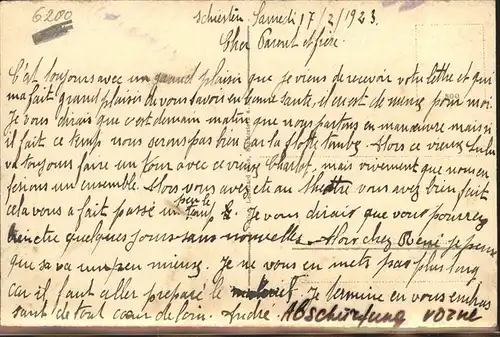 6200
Schierstein Samedi 17/2/1923.
Cher Parent et frère.
C'est toujours avec un grand plaisir que je viens de recevoir votre lettre et qui
ma fait grand plaisir de vous savoir en bonne santé, il en est de meme pour moi
Je vous dirais que c'est demain matin que nous partons en manœuvre mais si
il fait ce temps nous serons pas bien car la flotte tombe. Alors ce vieux
va toujours faire un tour avec ce vieux Charlot, mais vivement que nous en
ferions un ensemble. Alors vous avez été au théâtre vous avez bien fait
cela vous a fait passé un peu le temps. Je vous dirais que vous pourrez
bien être quelques jours sans nouvelles. Alors chez René je pense
que sa va un peu mieux. Je ne vous en mets pas plus long
car il faut aller preparé le materiel. Je termine en vous embras
sant de tout cœur de loin. André. Abschürfung vorne